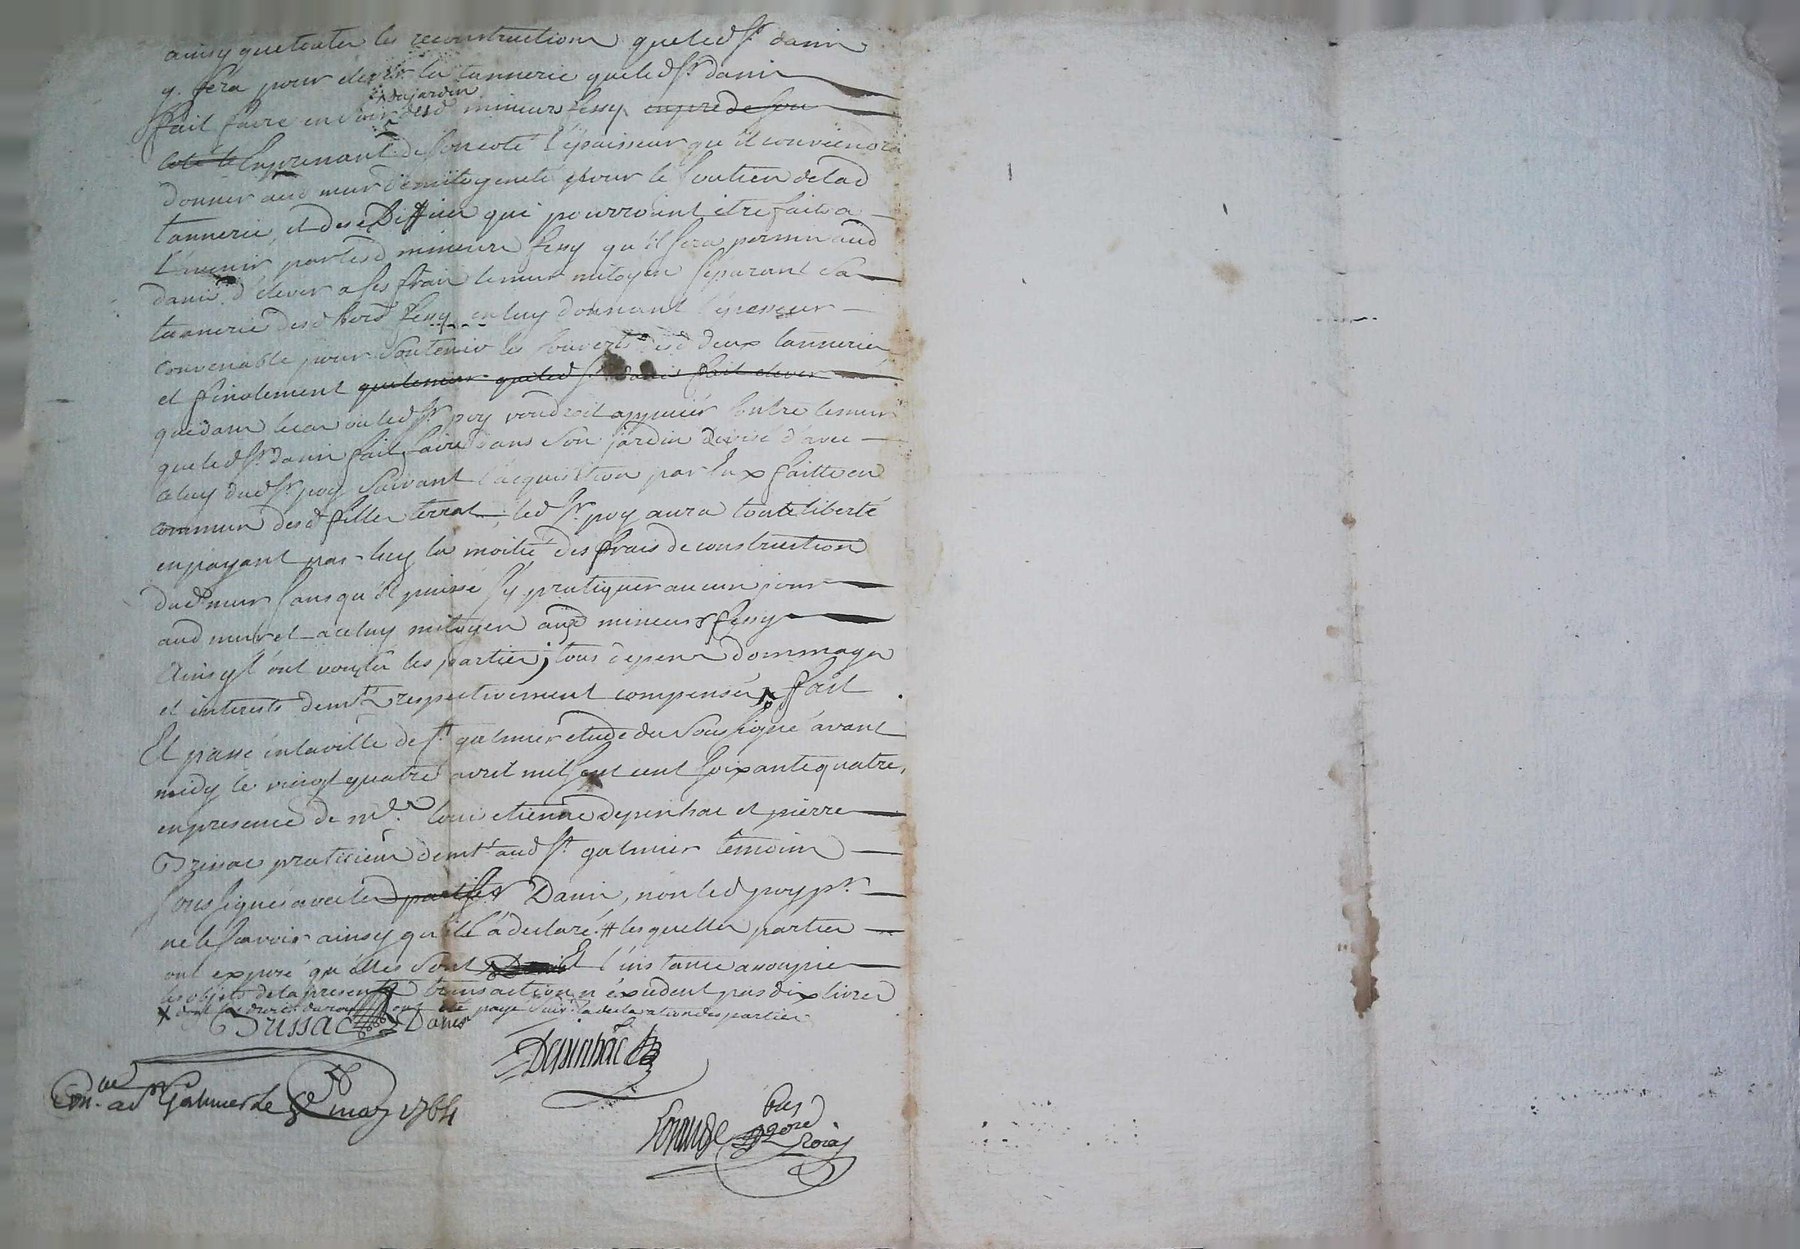 ainsy que toutes les reconstructions que led Sr danis
y fera pour elever la tannerie que led Sr danis
du jardin
fait faire en Soir desd mineurs fessy en prede son
coté le En prenant de Son coté l'épaisseur qu'il conviendra
donner aud mur mitoyeneté pour le Soutien de lad
tannerie, et des Ediffices qui pourroint etre faits a
L'avenir par lesd mineurs fessy qu'il Sera permis aud
danis d'elever a Ses frais le mur mitoyen Separant Sa
tannerie desd hers fessy en luy donnant l'épesseur
convenable pour Soutenir les Couverts desd deux tanneries
et finalement que le mur que led Sr danis fait elever
que dans le cas ou led Sr poy voudroit appuier Contre le mur
que led Sr danis fait faire dans Son jardin divisé d'avec
celuy dud Sr poy Suivant l'acquisition par Eux faitte en
commun desd filles terrat, led Sr poy aura toute liberté
en payant par luy la moitié des frais de construction
dud mur Sans qu'il puisse S'y pratiquer aucun jour
aud mur et a celuy mitoyen auxd mineurs fessy
Ainsy l'ont voulû les parties; tous depens dommages
et interests demt respectivement compensés x fait
Et passé en la ville de St galmier etude du Soussigné avant
midy le vingt quatre avril mil Sept cent Soixante quatre,
en presence de mr. Louis etienne depinhac et pierre
Brissac praticiens demt aud St galmier temoins
Soussignés avec les parties Danis, non led poy pr
ne le Scavoir ainsy qu'il l'a declaré # lesquelles parties
ont exposé qu'elles Sont Danis Et l'instance assoupie
les objets de la presente transaction n'éxcedent pas dix livres
x dont les droits ont été payé Suivt la declaration des parties
Brissac Danis
Depinhac
Con.lé a St Galmier le 5e may 1764